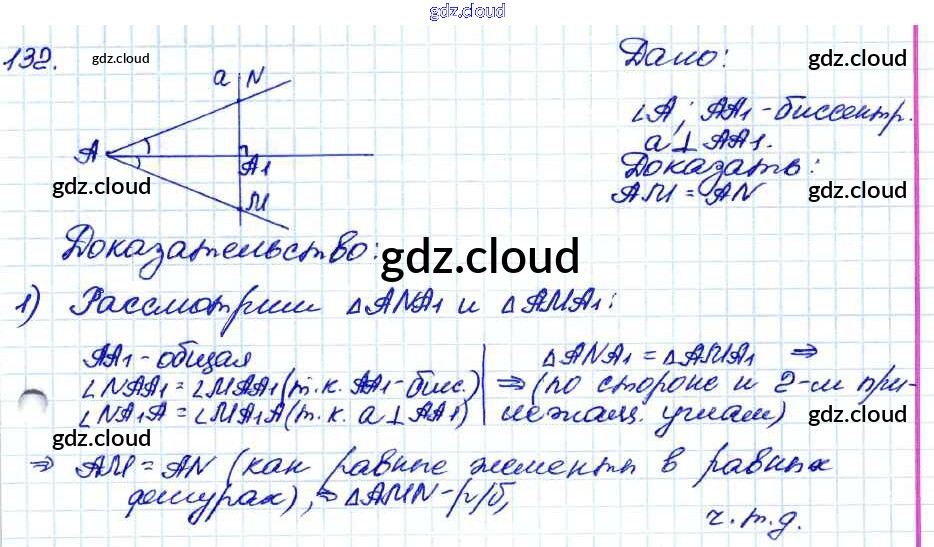 gdz.cloud
132.
gdz.cloud
a N
A
A1
M
gdz.cloud
Дано: gdz.cloud
∠A; AA1 - биссектр.
a ⊥ AA1.
Доказать:
AM = AN gdz.cloud
Доказательство: gdz.cloud
1) Рассмотрим △ANA1 и △AMA1:
AA1 - общая △ANA1 = △AMA1 ⇒
∠NAA1 = ∠MAA1 (т.к. AA1 - бис.) ⇒ (по стороне и 2-м при-
∠NA1A = ∠MA1A (т.к. a ⊥ AA1) лежащ. углам)
gdz.cloud gdz.cloud
⇒ AM = AN (как равные элементы в равных
фигурах), ⇒ △AMN - р/б,
ч.т.д.